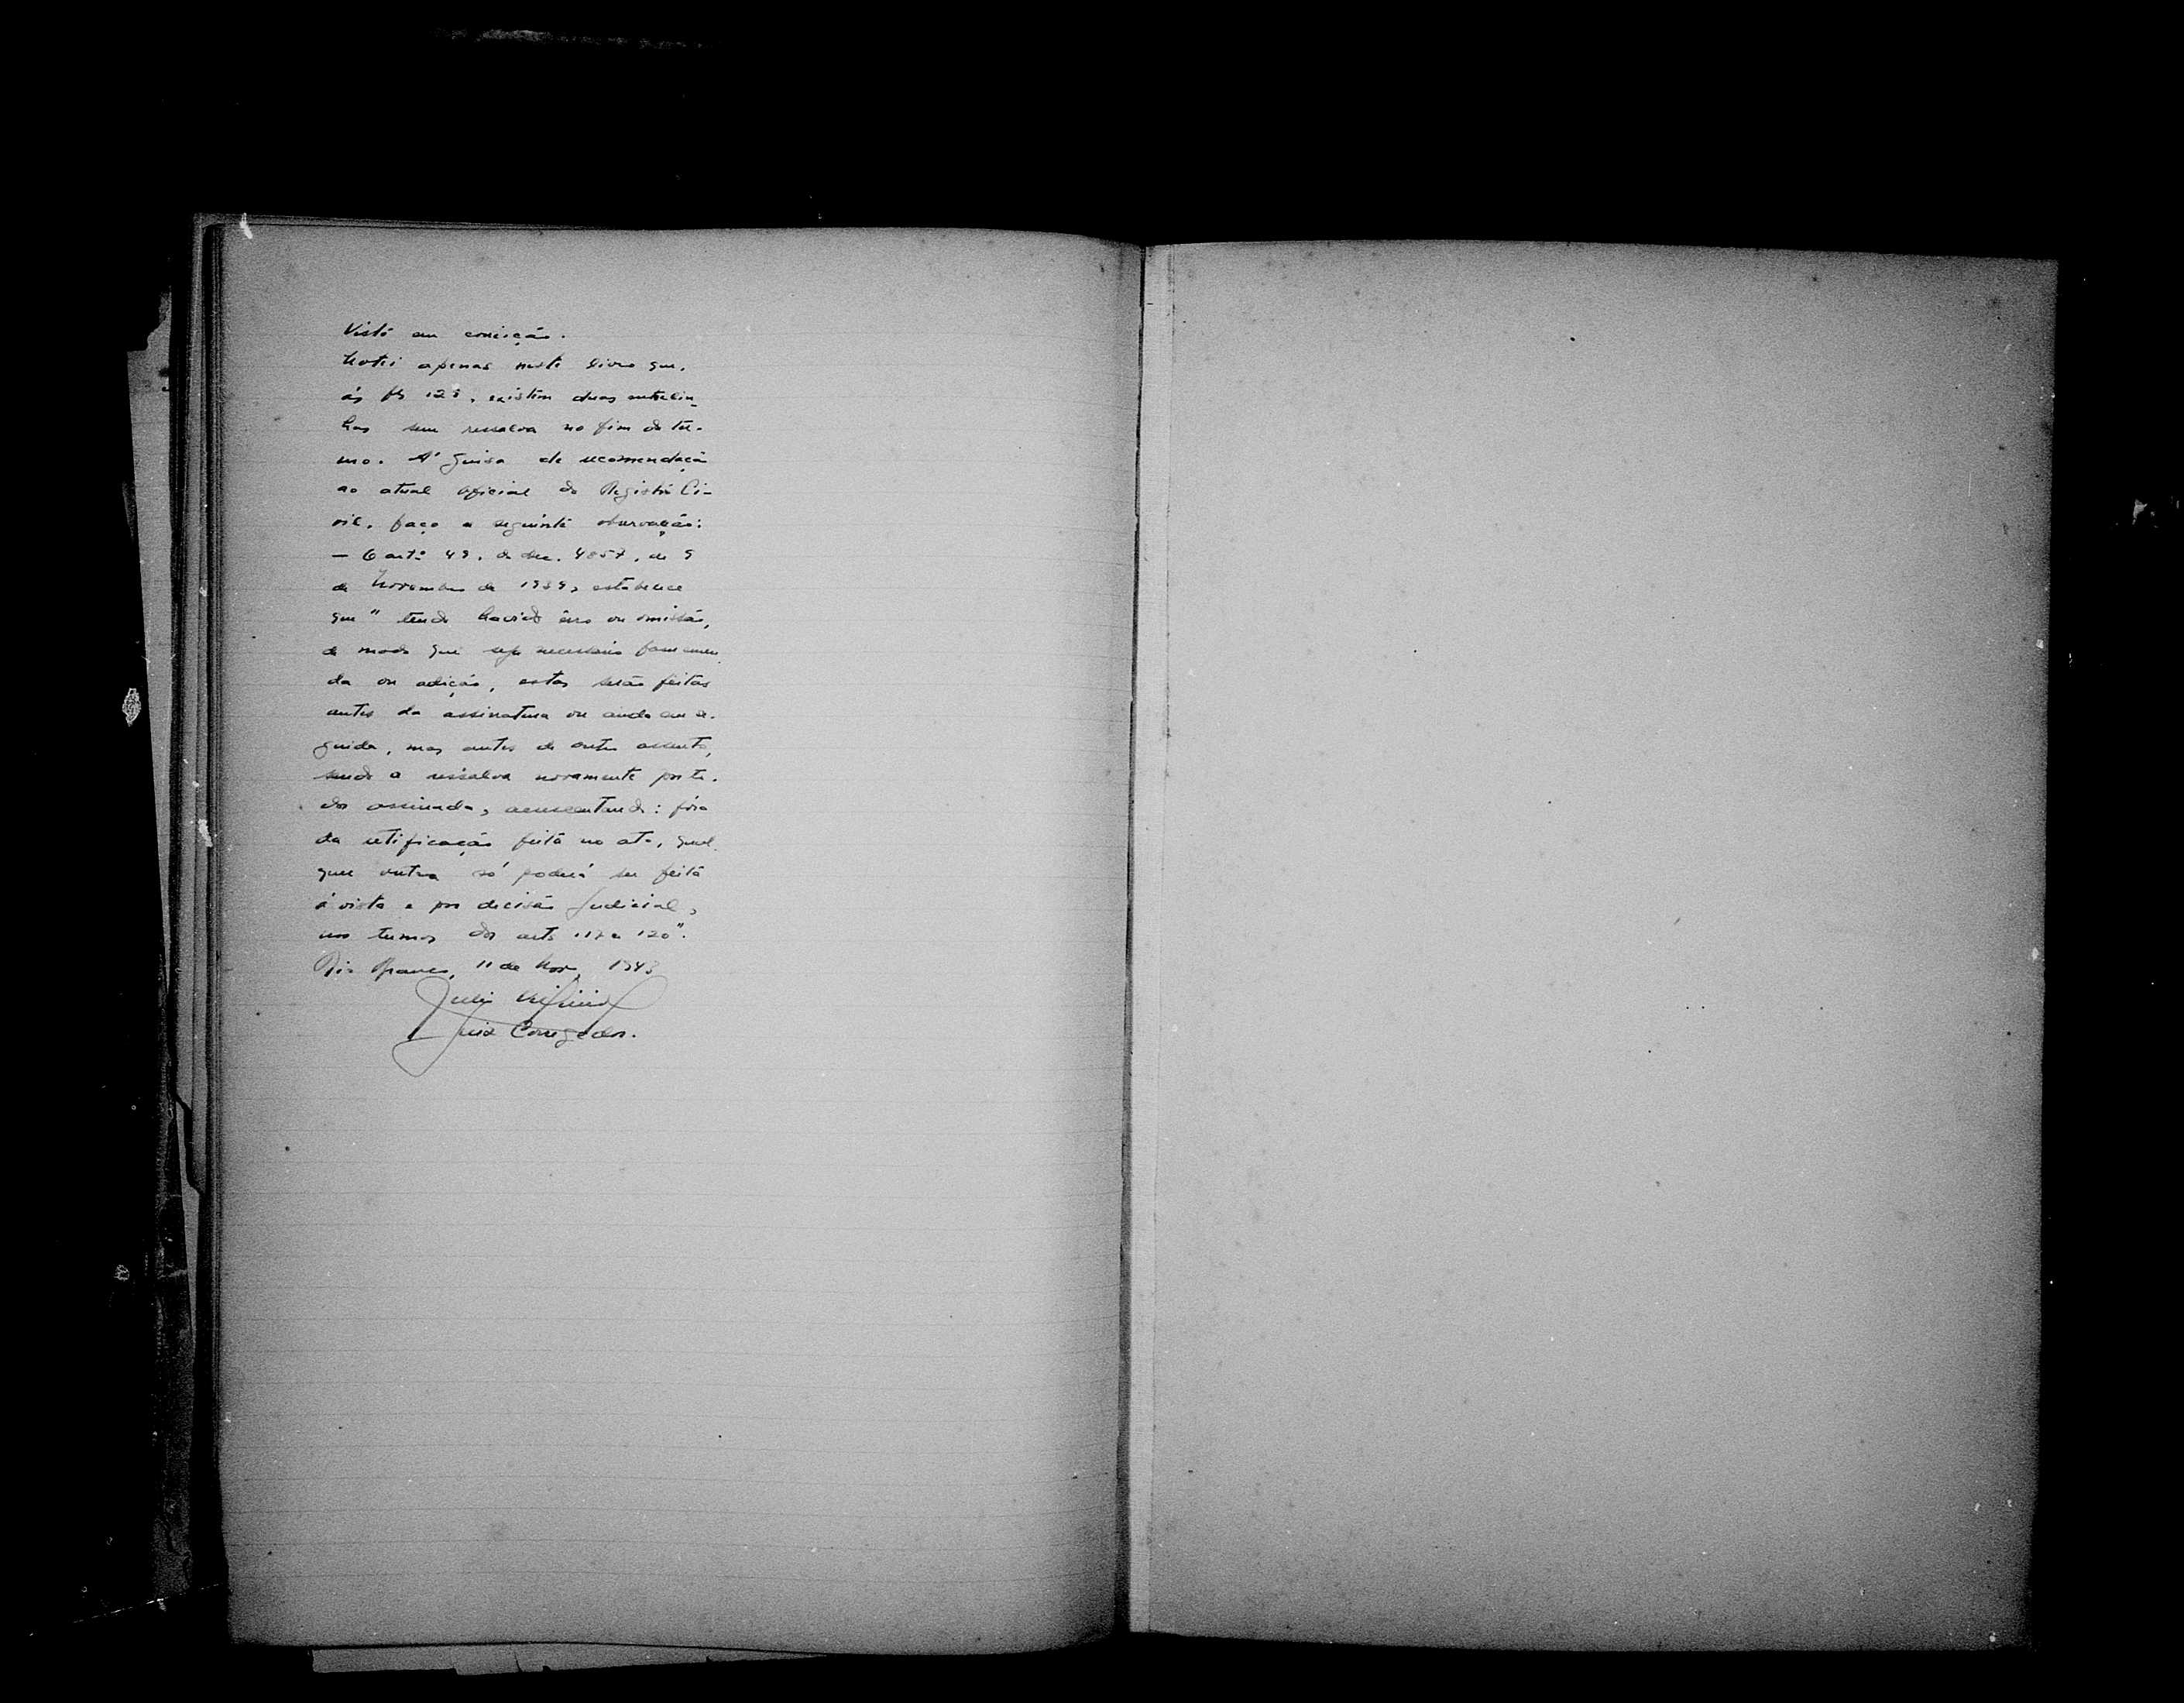 Visto em correição.
Notei apenas neste livro que,
ás fls 128, existem duas entrelin-
has sem ressalva no fim do ter-
mo. A' guisa de recomendação
ao atual oficial do Registro Ci-
vil, faço a seguinte observação:
— O artº 49, do dec. 4857, de 9
de Novembro de 1939, estabelece
que "tendo havido êrro ou omissão,
de modo que seja necessario fazer emen
da ou adição, estas serão feitas
antes da assinatura ou ainda em se-
guida, mas antes de outro assento,
sendo a ressalva novamente por to-
dos assinada, acrescentando: fóra
da retificação feita no ato, qual-
quer outra só poderá ser feita
á vista e por decisão judicial,
nos termos dos arts 117 a 120".
Rio Branco, 11 de Nov, 1943
Juiz Corregedor.